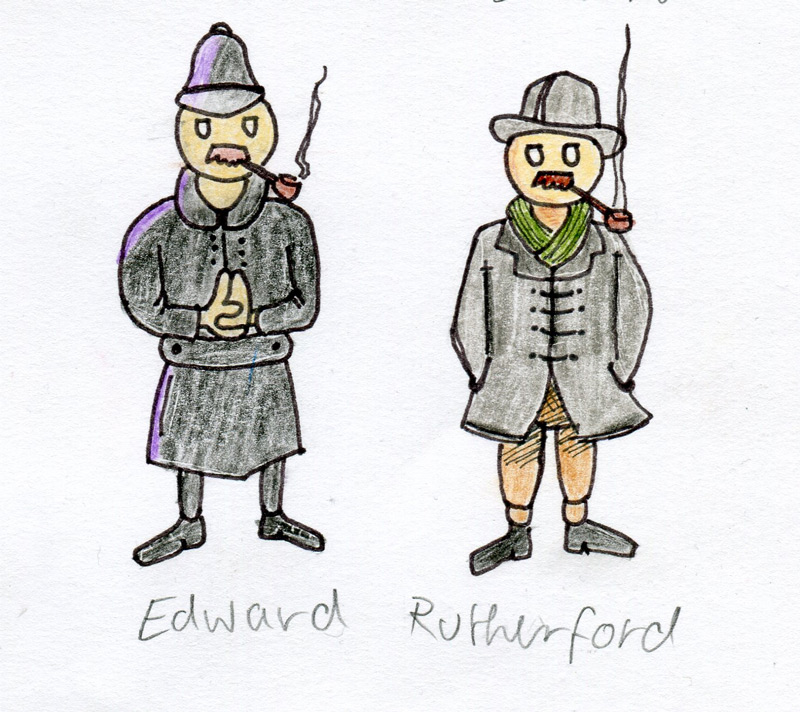 Edward
Rutherford